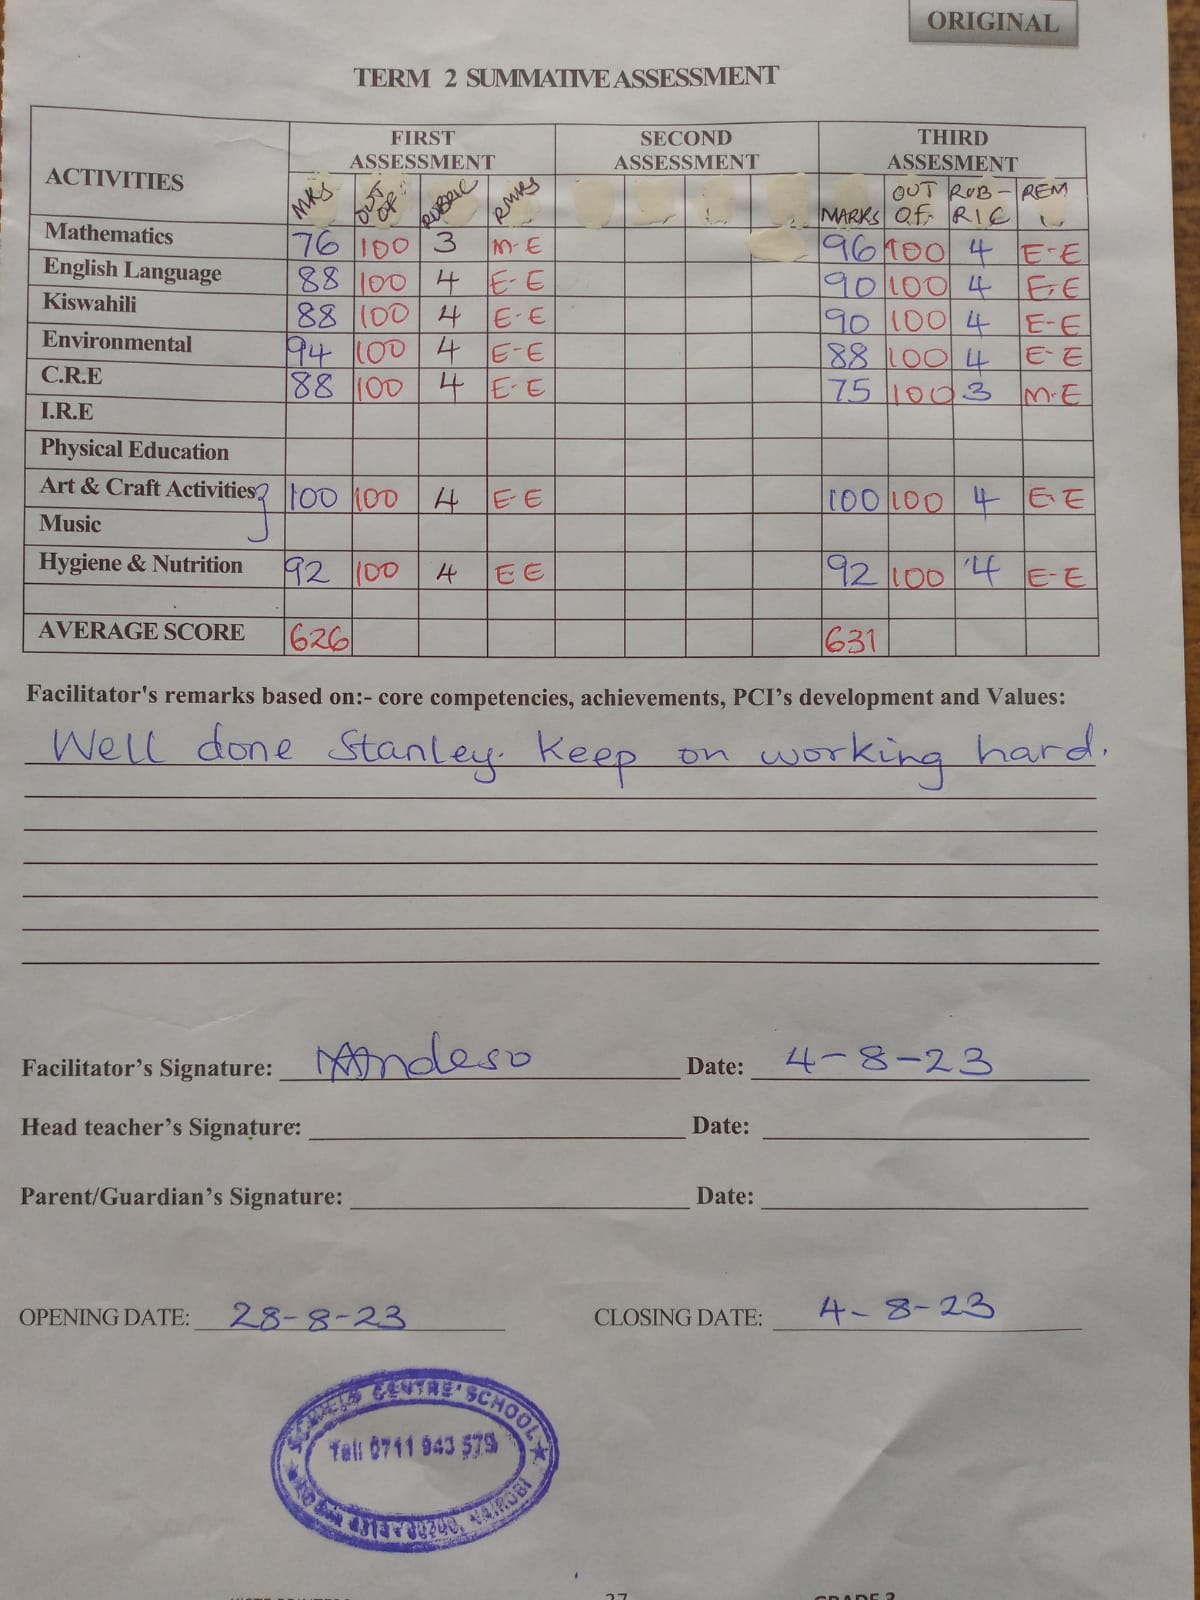 ORIGINAL
TERM 2 SUMMATIVE ASSESSMENT
ACTIVITIES FIRST ASSESSMENT SECOND ASSESSMENT THIRD ASSESMENT
MKS OUT OF RUBRIC RMKS MARKS OUT OF RUB-RIC REM
Mathematics 76 100 3 M-E 96 100 4 E-E
English Language 88 100 4 E-E 90 100 4 E-E
Kiswahili 88 100 4 E-E 90 100 4 E-E
Environmental 94 100 4 E-E 88 100 4 E-E
C.R.E 88 100 4 E-E 75 100 3 M-E
I.R.E
Physical Education
Art & Craft Activities 100 100 4 E-E 100 100 4 E-E
Music
Hygiene & Nutrition 92 100 4 EE 92 100 4 E-E
AVERAGE SCORE 626 631
Facilitator's remarks based on:- core competencies, achievements, PCI's development and Values:
Well done Stanley. Keep on working hard.
Facilitator's Signature: Date: 4-8-23
Head teacher's Signature: Date:
Parent/Guardian's Signature: Date:
OPENING DATE: 28-8-23 CLOSING DATE: 4-8-23
CENTRE SCHOOL
Tel: 0711 943 575
NAIROBI
27 GRADE 3